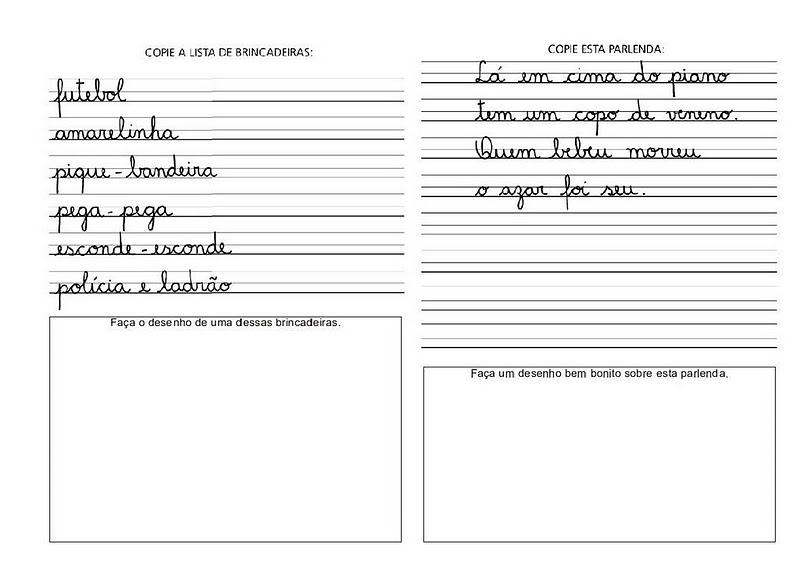 COPIE A LISTA DE BRINCADEIRAS:
futebol
amarelinha
pique-bandeira
pega-pega
esconde-esconde
polícia e ladrão
Faça o desenho de uma dessas brincadeiras.
COPIE ESTA PARLENDA:
Lá em cima do piano
tem um copo de veneno.
Quem bebeu morreu
o azar foi seu.
Faça um desenho bem bonito sobre esta parlenda.